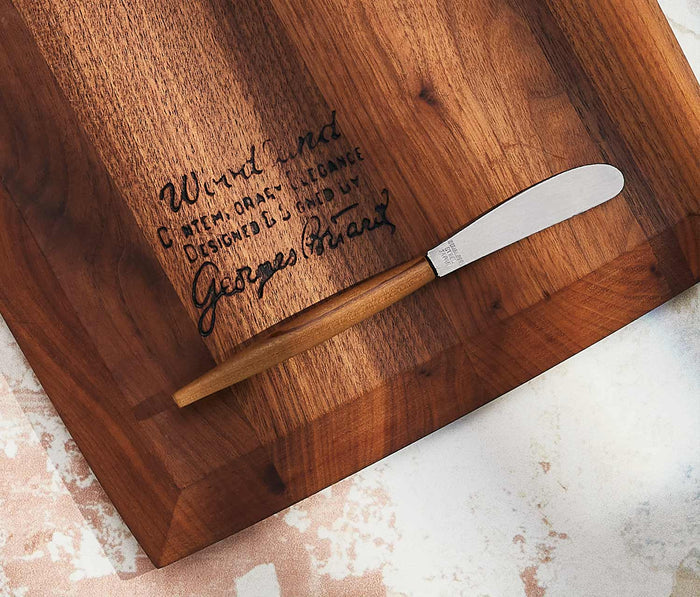 Woodland
CONTEMPORARY ELEGANCE
DESIGNED & SIGNED BY
Georges Briard